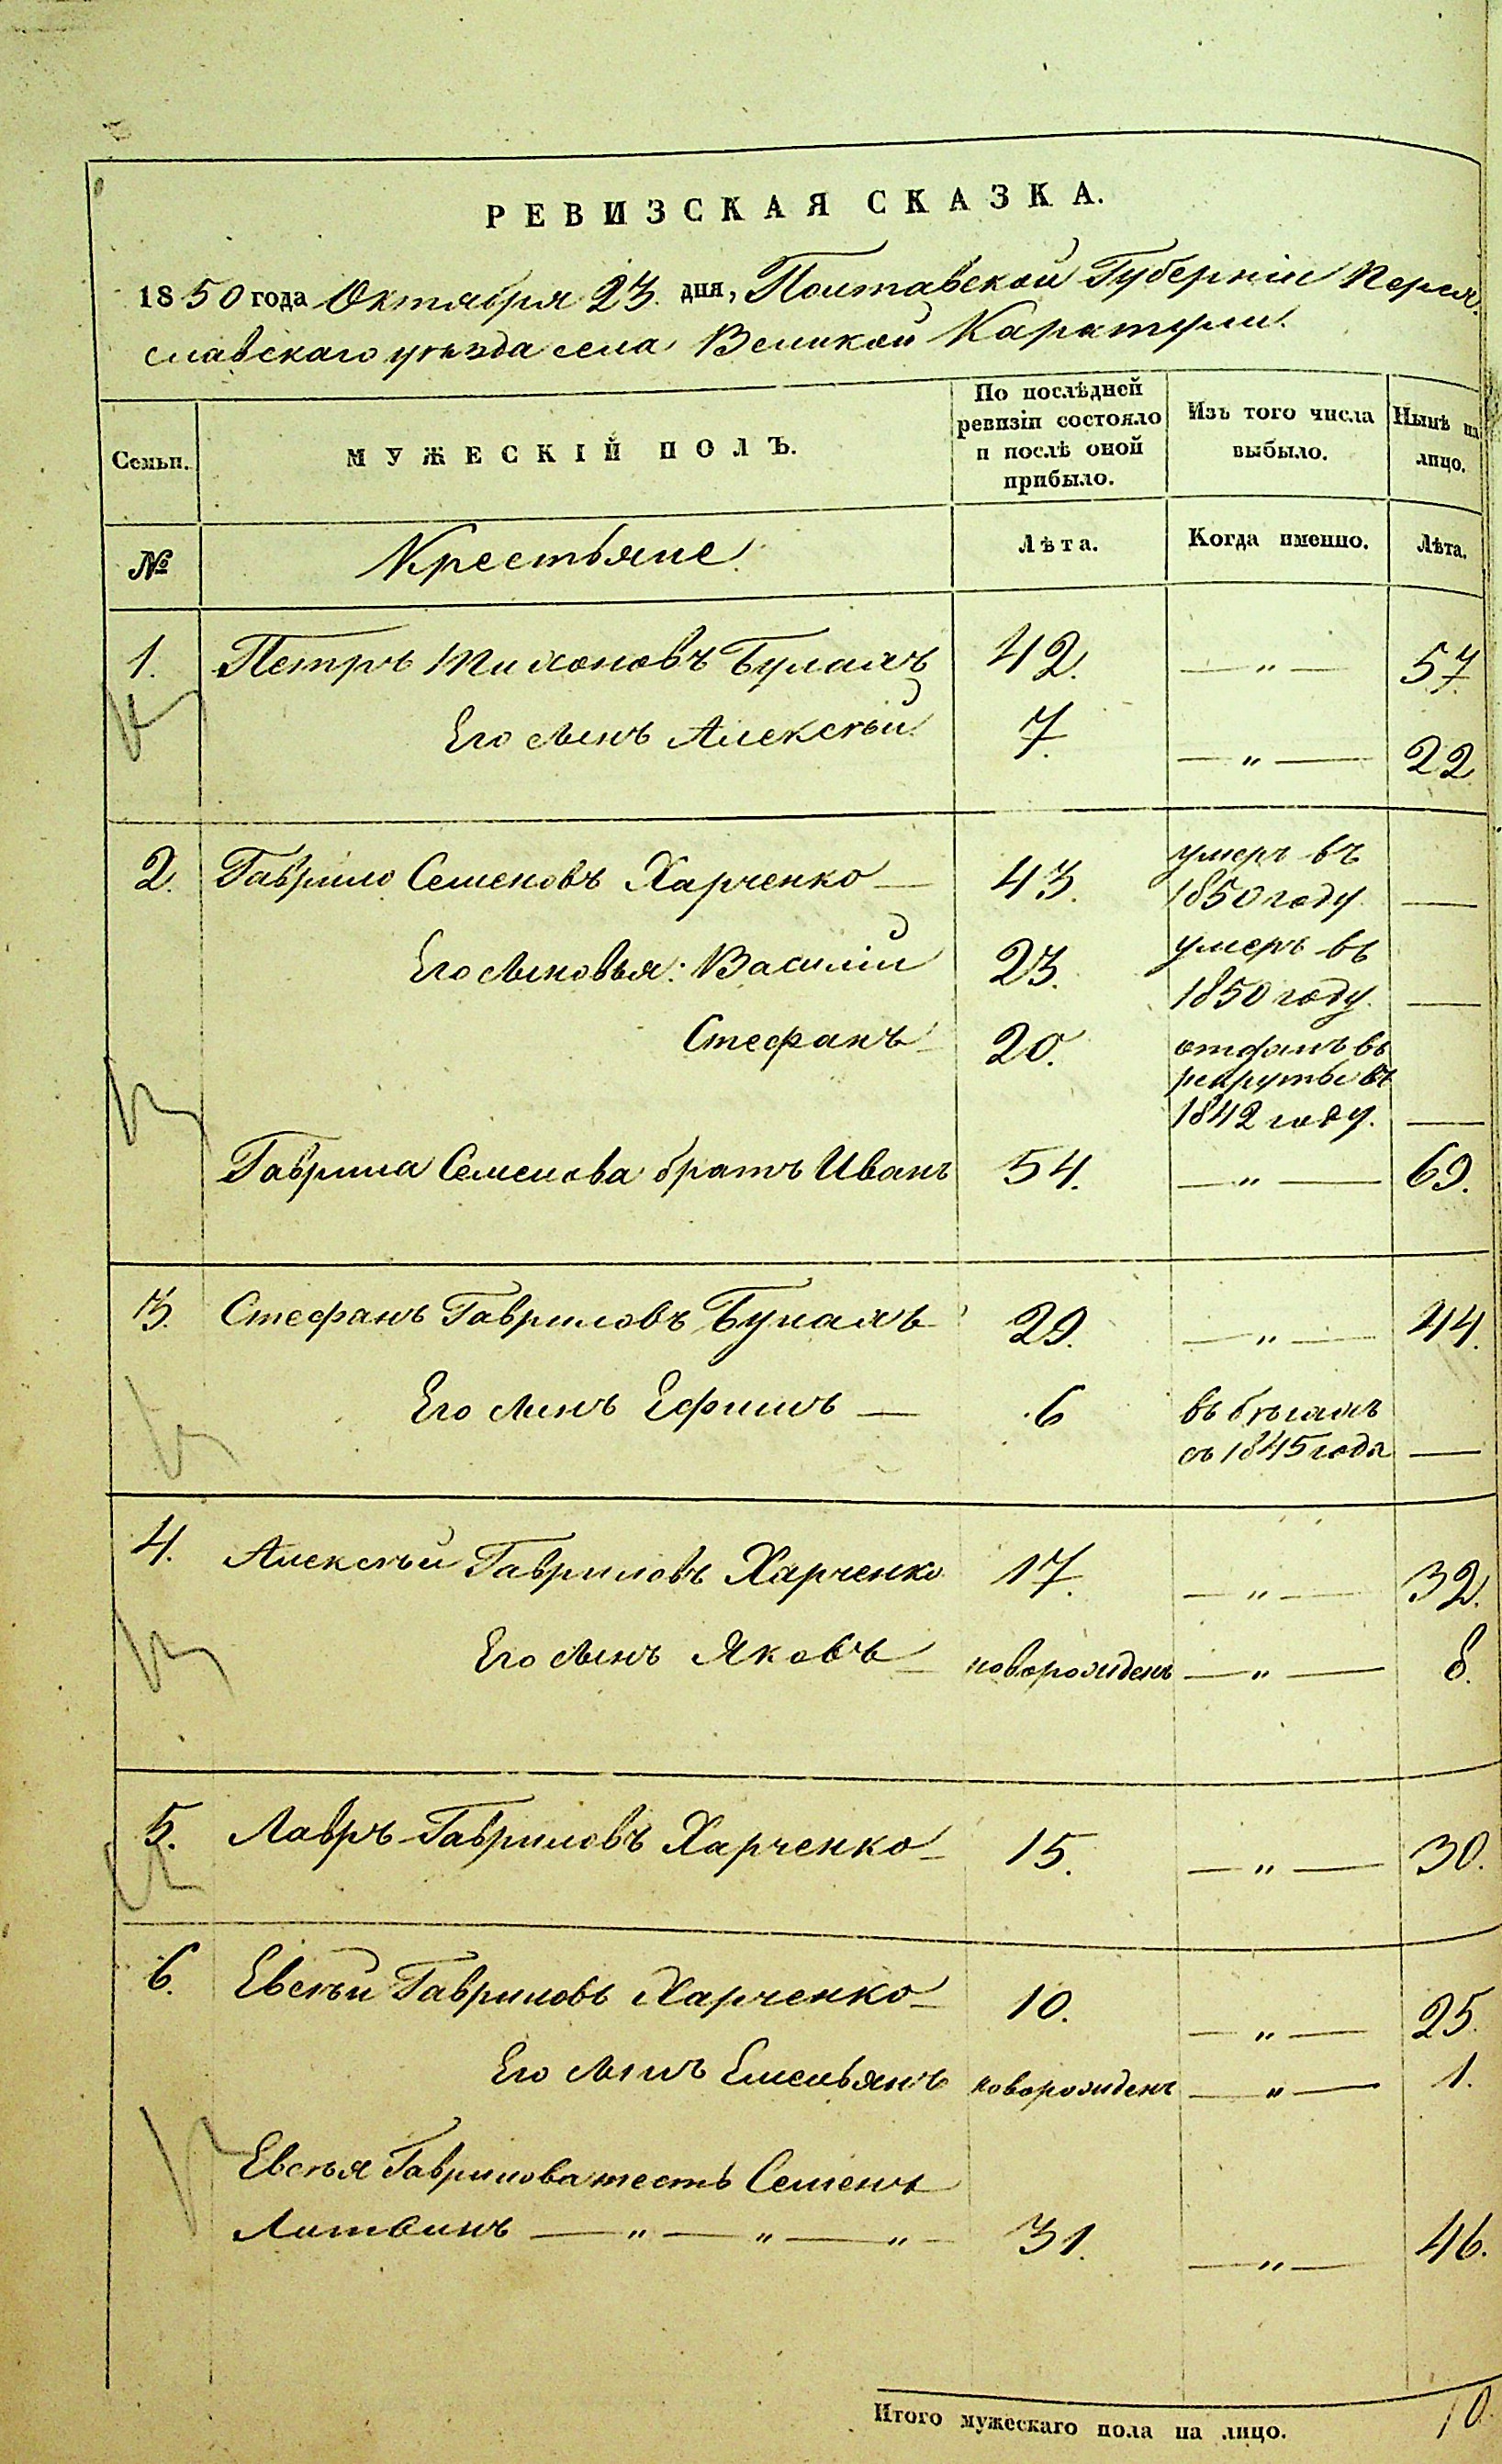 РЕВИЗСКАЯ СКАЗКА.
1850 года Октября 23. дня, Полтавской Губерніи Перея-
славскаго уѣзда села Великой Каратули.
Семьи.
МУЖЕСКІЙ ПОЛЪ.
По послѣдней
ревизіи состояло
и послѣ оной
прибыло.
Изъ того числа
выбыло.
Нынѣ на
лицо.
№ Крестьяне. Лѣта. Когда именно. Лѣта.
1. Петръ Тихоновъ Булахъ 42. — „ — 57.
Его сынъ Алексѣй 7. — „ — 22.
2. Гаврило Семеновъ Харченко — 43. умеръ въ
1850 году. —
Его сыновья: Василій 23. умеръ въ
1850 году. —
Стефанъ 20. отданъ въ
рекруты въ
1842 году. —
Гаврила Семенова братъ Иванъ 54. — „ — 69.
3. Стефанъ Гавриловъ Булахъ 29. — „ — 44.
Его сынъ Ефимъ — 6 въ бѣгахъ
съ 1845 года —
4. Алексѣй Гавриловъ Харченко 17. — „ — 32.
Его сынъ Яковъ новорожденъ — „ — 8.
5. Лавръ Гавриловъ Харченко 15. — „ — 30.
6. Евсѣй Гавриловъ Харченко 10. — „ — 25.
Его сынъ Емельянъ новорожденъ — „ — 1.
Евсѣя Гаврилова тесть Семенъ
Литвинъ — „ — „ — „ — 31. — „ — 46.
Итого мужескаго пола на лицо. 10.